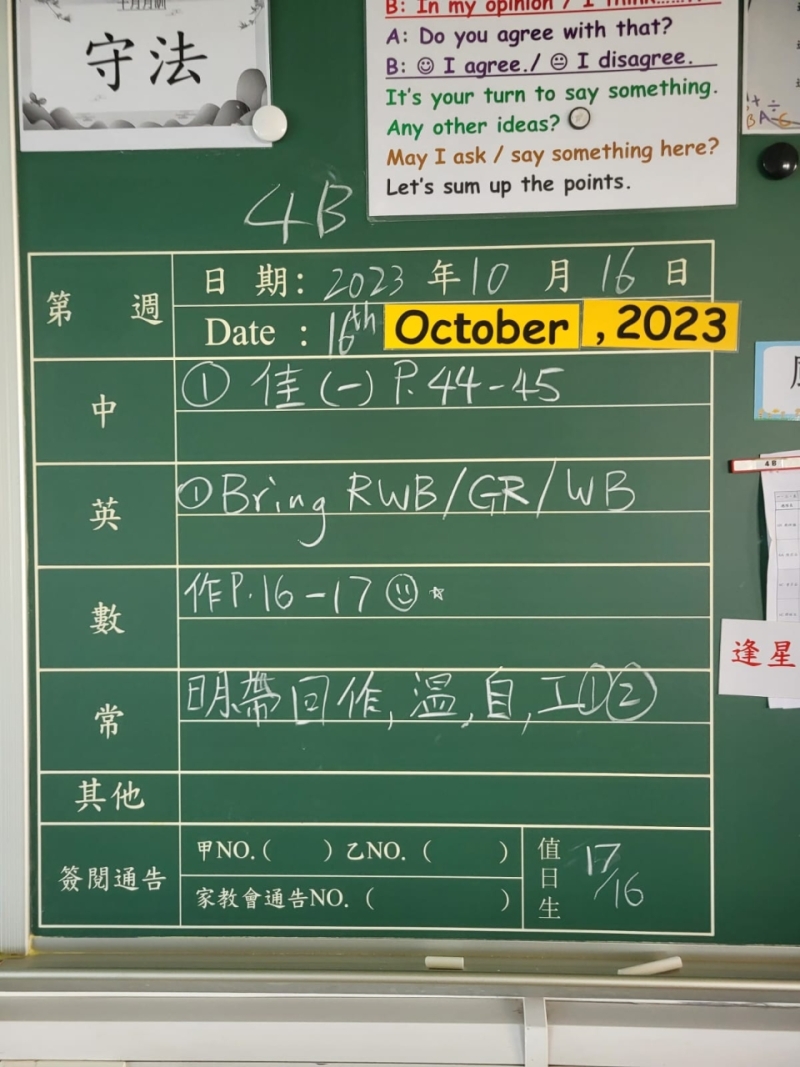 守法
B: In my opinion / I think
A: Do you agree with that?
B: ☺ I agree./ 😐 I disagree.
It's your turn to say something.
Any other ideas?
May I ask / say something here?
Let's sum up the points.
4B
第 週
日 期: 2023 年 10 月 16 日
Date : 16th October , 2023
中
① 佳 (一) P. 44-45
英
① Bring RWB/GR/WB
數
作 P. 16-17 ☺ ☆
常
明帶回作, 溫, 自, 工①②
其他
簽閱通告
甲NO. ( ) 乙NO. ( )
家教會通告NO. ( )
值日生
17/16
4B
逢星